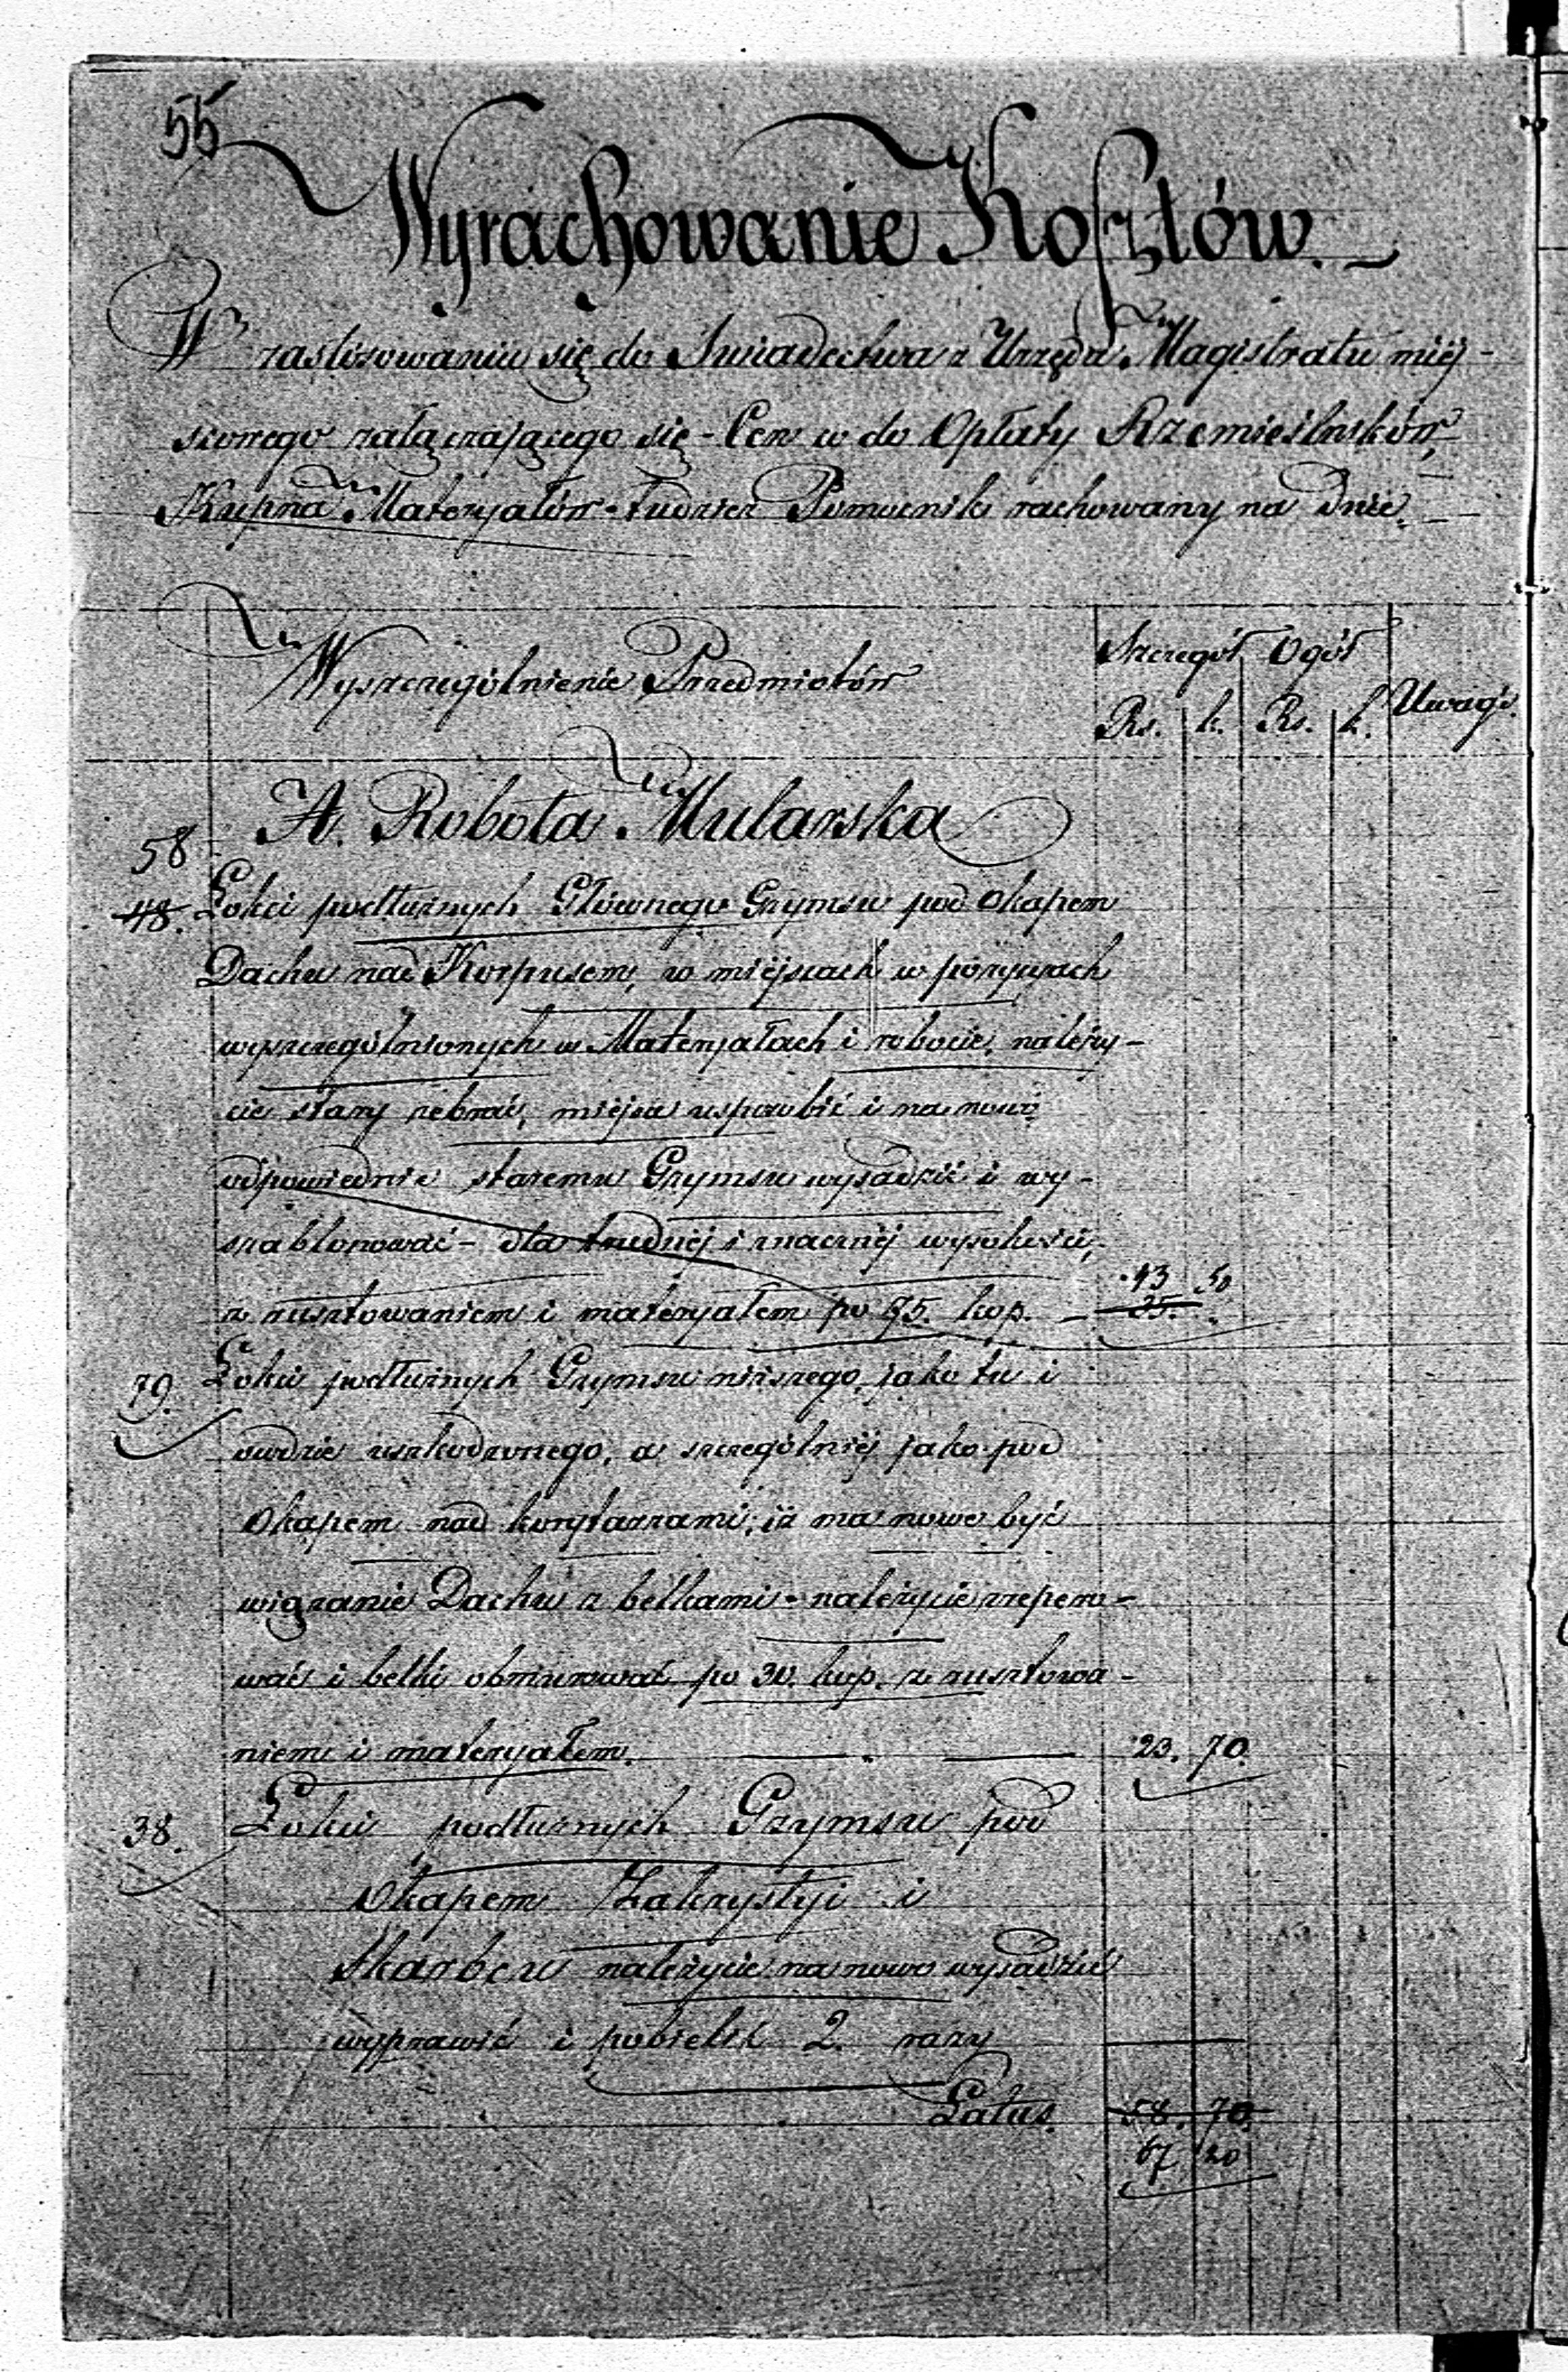 55
Wyrachowanie Kosztów.
W zastósowaniu się do Swiadectwa z Urzędu Magistratu miéj-
scowego załączającego się - Cen w do Opłaty Rzemieślników,
Kupna Materyałów - tudzież Pomocnik rachowany na Dnie.
Wyszczególnienie Przedmiotów
Szczegół Ogół
Rs. k. Rs. k. Uwagi.
A. Robota Mularska
58
48. Łokci podłużnych Głównego Gzymsu pod Okapem
Dachu nad Korpusem, w miéjscach w pozycyach
wyszczególnionych w Materyałach i robocie, należy-
cie stary zebrać, miejsce usposobić i na nowo
odpowiednie staremu Gzymsu wysadzić i wy-
szablonować - dla trudnéj i znacznéj wysokości,
z rusztowaniem i materyałem po 75. kop. - 43 50
35.
79. Łokci podłużnych Gzymsu niższego, jako tu i
owdzie uszkodzonego, a szczególniéj jako pod
Okapem nad korytarzami, iż ma nowe być
wiązanie Dachu z belkami - należycie zreperо-
wać i belki obmurować po 30. kop. z rusztowa-
niem i materyałem. 23. 70
38. Łokci podłużnych Gzymsu pod
Okapem Zakrystyi i
Skarbcu należycie na nowo wysadzić
wyprawić i pobielić 2. razy
Latus. 58. 70.
67 20